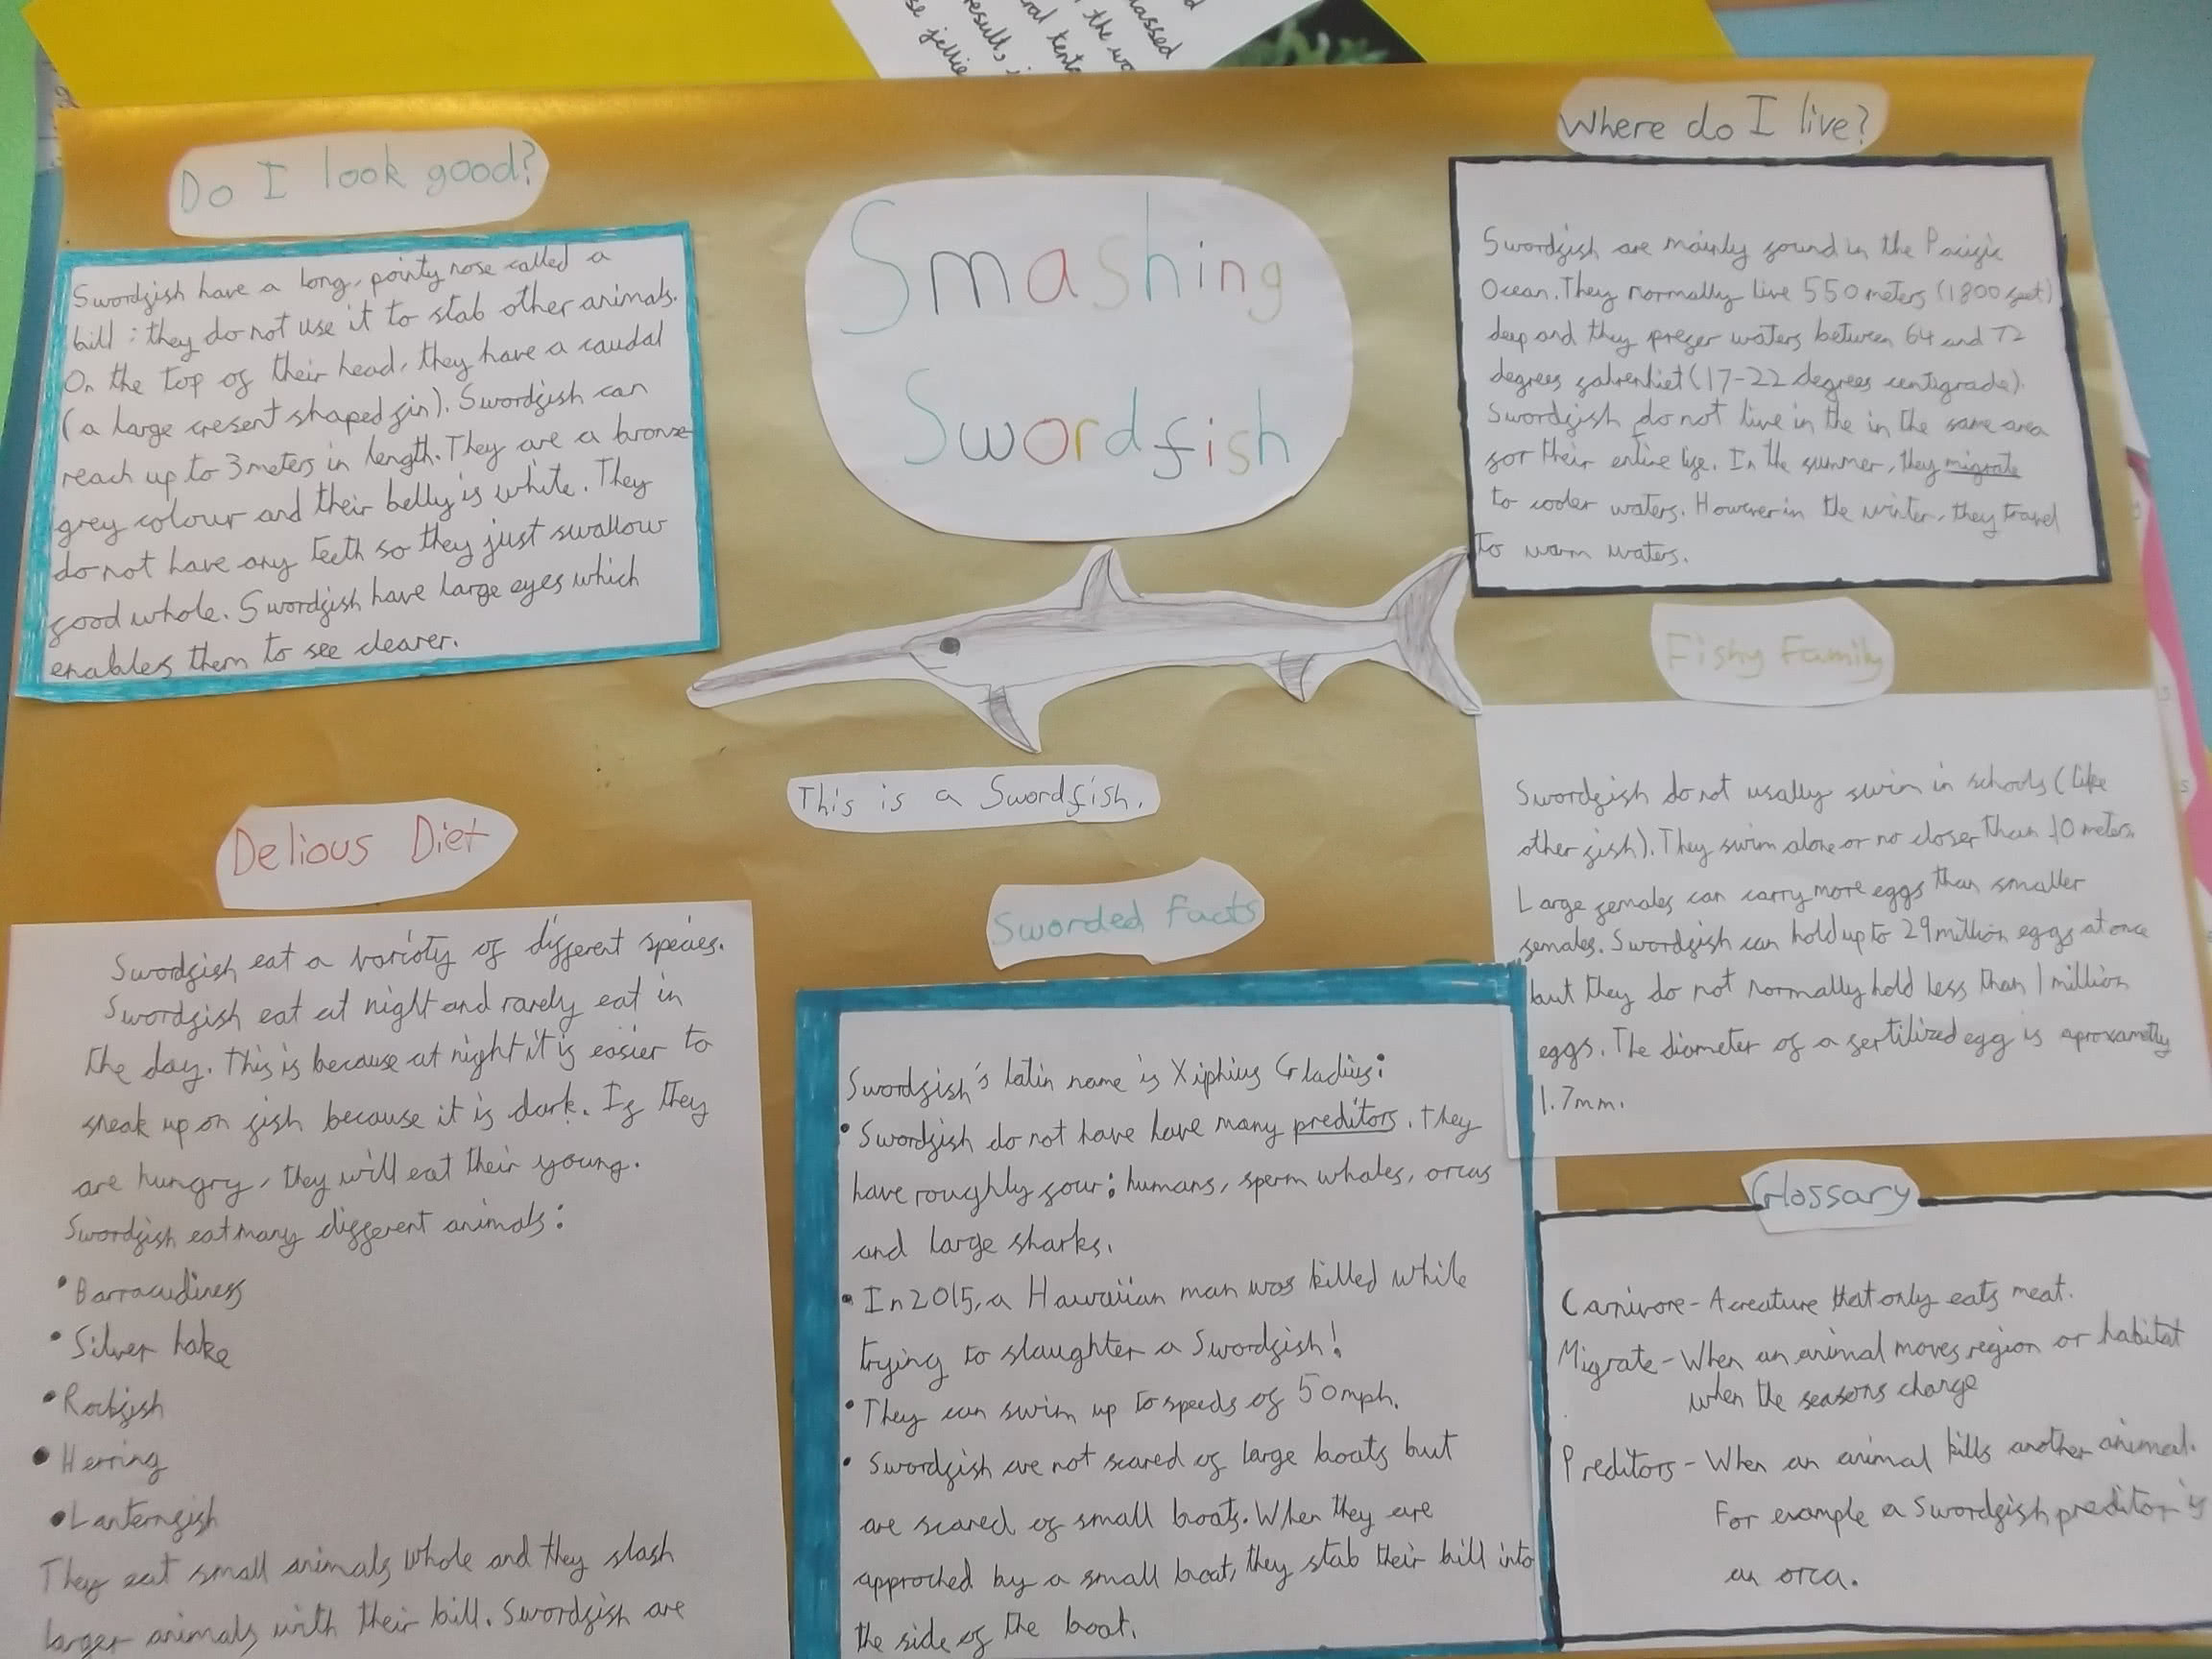 Do I look good?
Swordfish have a long, pointy nose called a
bill; they do not use it to stab other animals.
On the top of their head, they have a caudal
(a large cresent shaped fin). Swordfish can
reach up to 3 meters in length. They are a bronze
grey colour and their belly is white. They
do not have any teeth so they just swallow
food whole. Swordfish have large eyes which
enables them to see clearer.
Smashing
Swordfish
This is a Swordfish.
Where do I live?
Swordfish are mainly found in the Pacific
Ocean. They normally live 550 meters (1800 feet)
deep and they prefer waters between 64 and 72
degrees fahrenhiet (17-22 degrees centigrade).
Swordfish do not live in the in the same area
for their entire life. In the summer, they migrate
to cooler waters. However in the winter, they travel
to warm waters.
Fishy Family
Swordfish do not usally swim in schools (like
other fish). They swim alone or no closer than 10 meters.
Large females can carry more eggs than smaller
females. Swordfish can hold up to 29 million eggs at once
but they do not normally hold less than 1 million
eggs. The diameter of a fertilized egg is aproxametly
1.7mm.
Delious Diet
Swordfish eat a varioty of different species.
Swordfish eat at night and rarely eat in
the day. This is because at night it is easier to
sneak up on fish because it is dark. If they
are hungry, they will eat their young.
Swordfish eat many different animals:
• Barracudiness
• Silver hake
• Rockfish
• Herring
• Lanternfish
They eat small animals whole and they slash
larger animals with their bill. Swordfish are
Sworded Facts
Swordfish's latin name is Xiphius Gladius:
• Swordfish do not have have many preditors. They
have roughly four: humans, sperm whales, orcas
and large sharks.
• In 2015, a Hawaiian man was killed while
trying to slaughter a Swordfish!
• They can swim up to speeds of 50mph.
• Swordfish are not scared of large boats but
are scared of small boats. When they are
approched by a small boat, they stab their bill into
the side of the boat.
Glossary
Carnivore - A creature that only eats meat.
Migrate - When an animal moves region or habitat
when the seasons change
Preditors - When an animal kills another animal.
For example a Swordfish preditor is
an orca.
lassed
the wo
ral tenta
results
se jellie